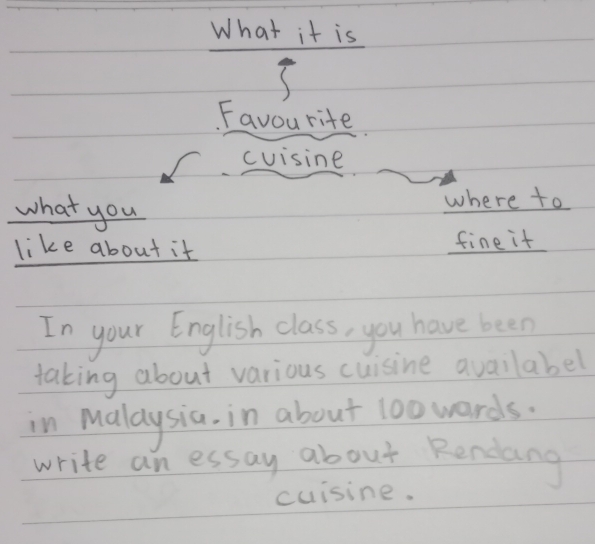 What it is
Favourite
cuisine
what you
like about it
where to
fine it
In your English class, you have been
taking about various cuisine availabel
in Malaysia. in about 100 wards.
write an essay about Rendang
cuisine.